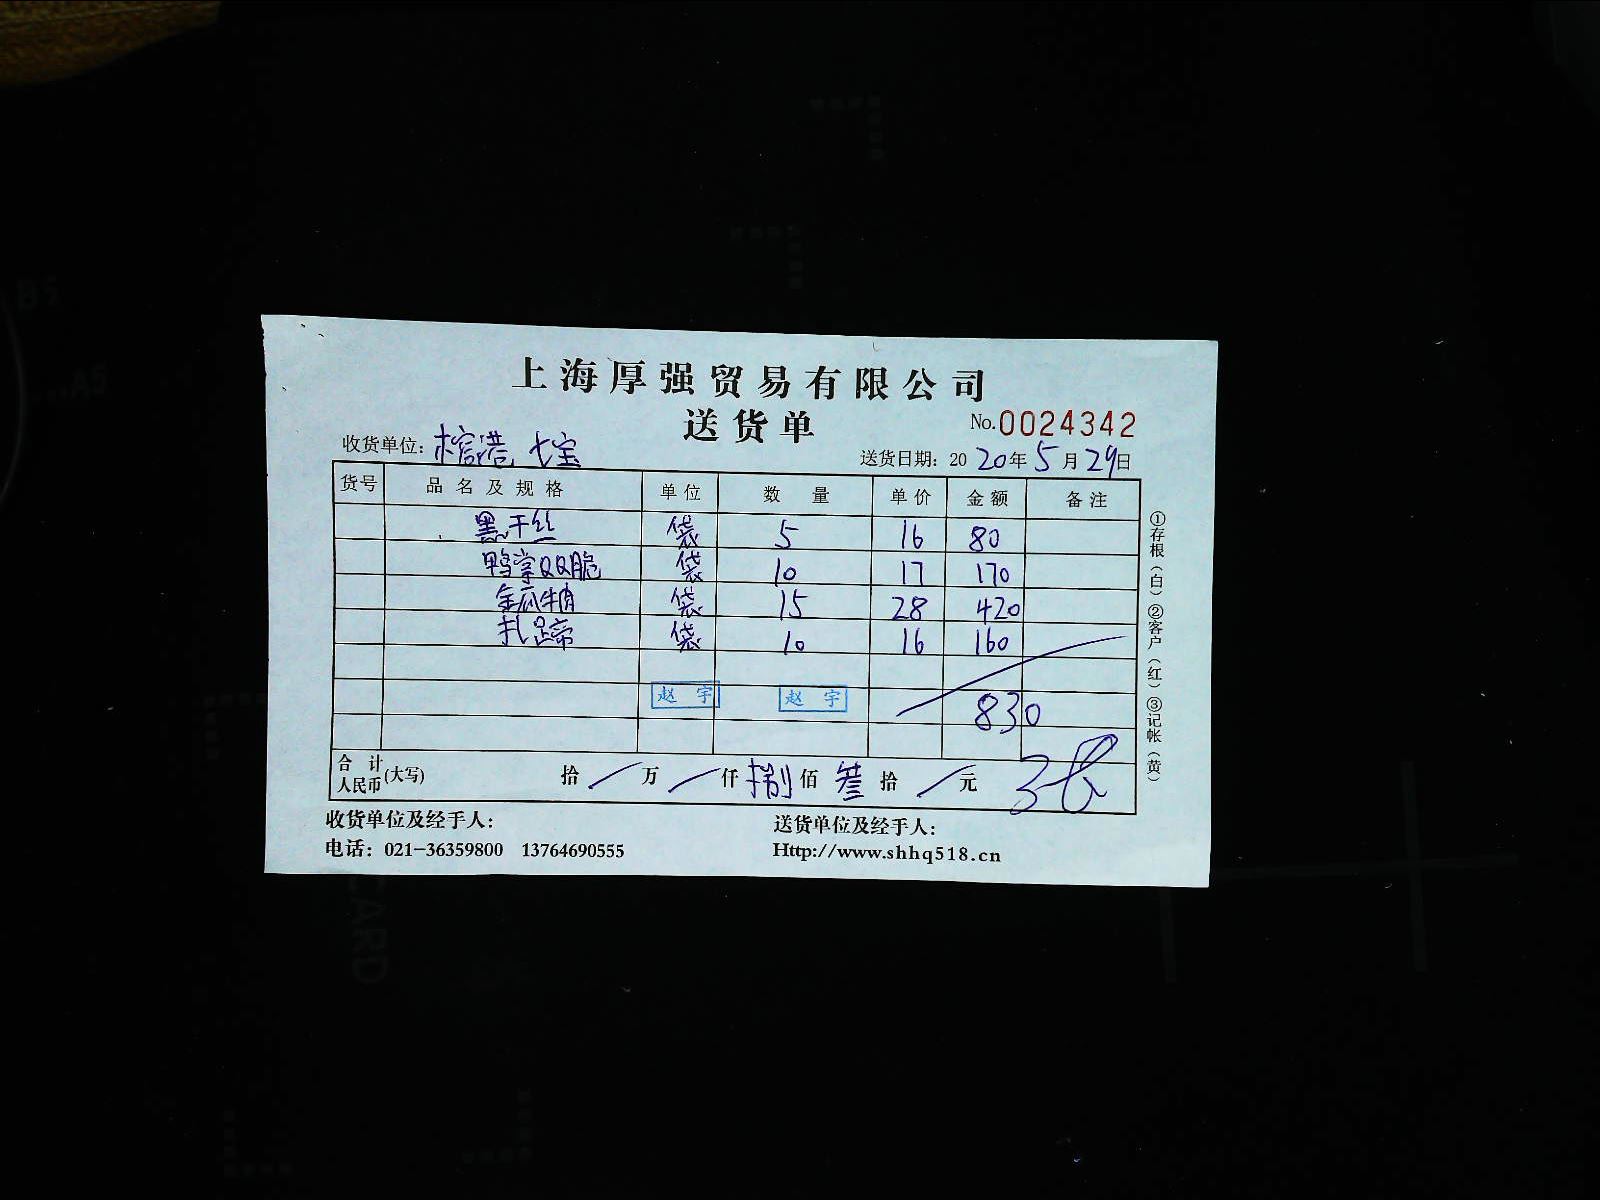 上海厚强贸易有限公司
送货单
No.0024342
收货单位：榕港 七宝
送货日期：2020年5月29日
货号 品名及规格 单位 数量 单价 金额 备注
黑干丝 袋 5 16 80
鸭掌QQ脆 袋 10 17 170
金瓜牛肉 袋 15 28 420
扎蹄 袋 10 16 160
赵宇 赵宇
830
合计人民币(大写) 拾 / 万 / 仟 捌 佰 叁 拾 / 元
①存根（白）②客户（红）③记帐（黄）
收货单位及经手人：
送货单位及经手人：
电话：021-36359800 13764690555
Http://www.shhq518.cn